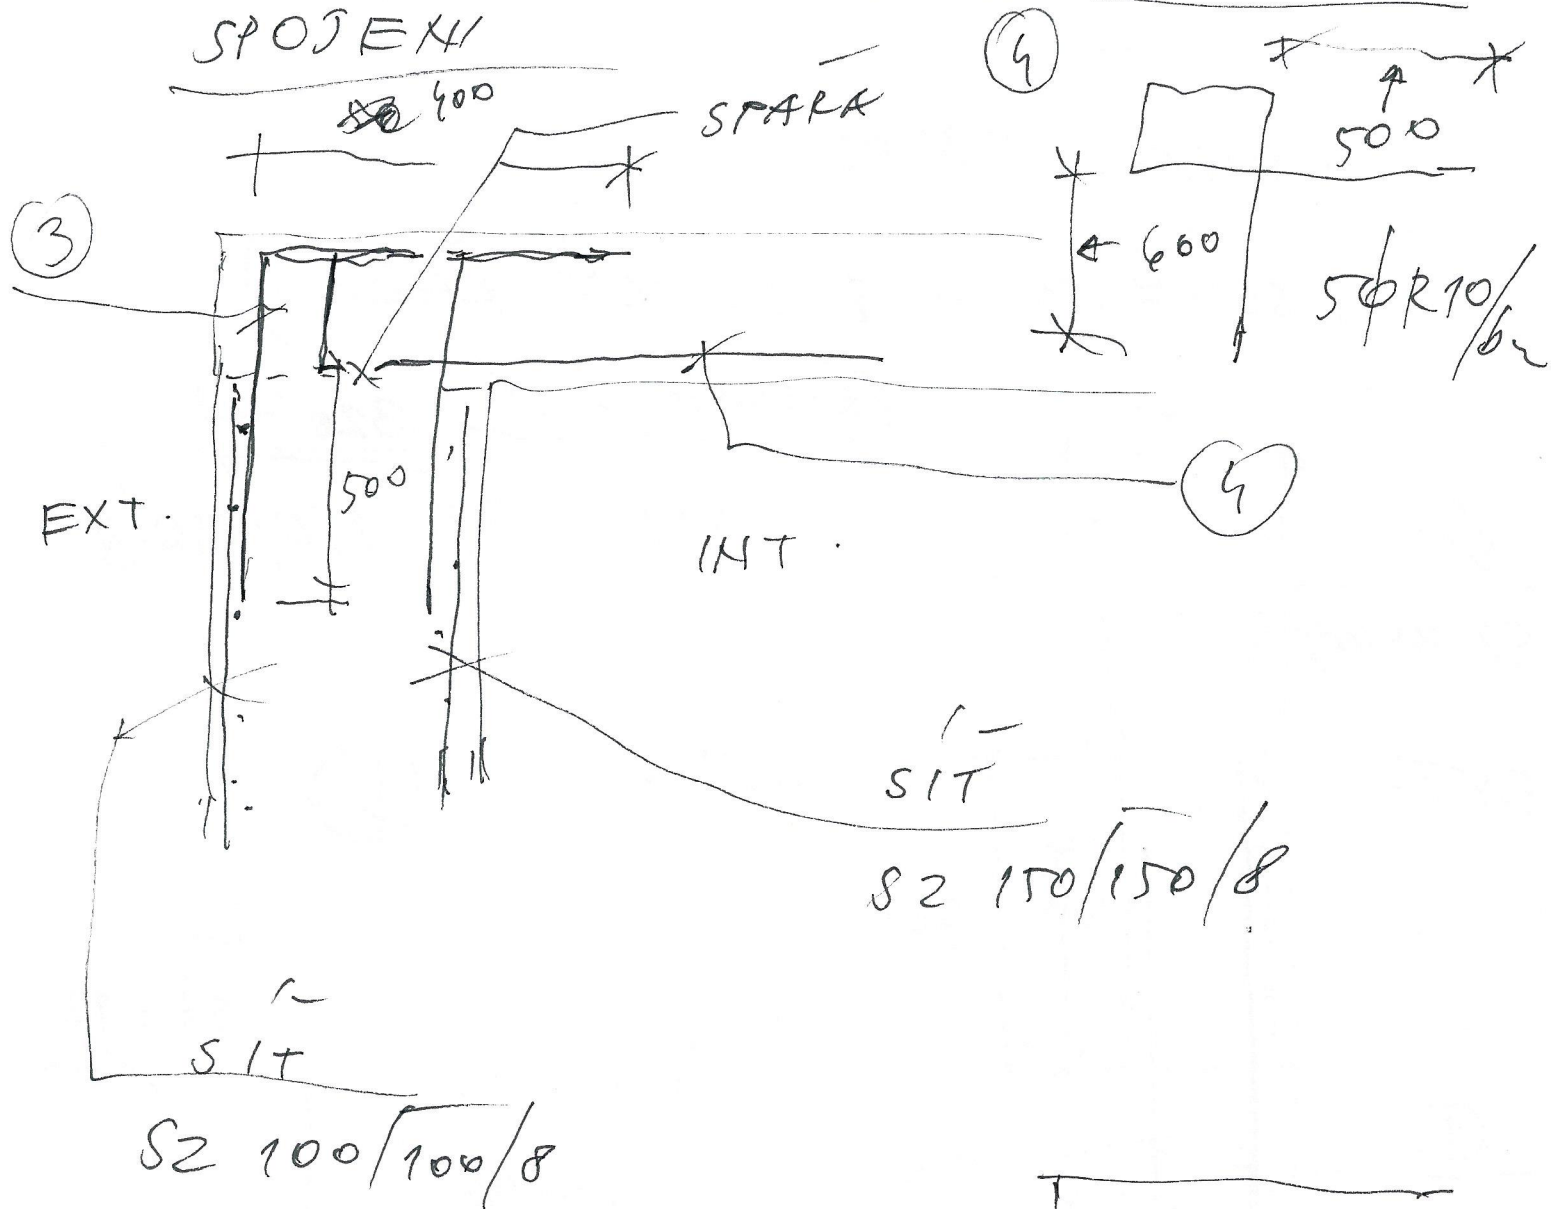 SPOJENÍ
400
SPÁRA
3
4
500
600
5ϕR10/bm
4
500
EXT.
INT.
SÍŤ
SZ 150/150/8
SÍŤ
SZ 100/100/8